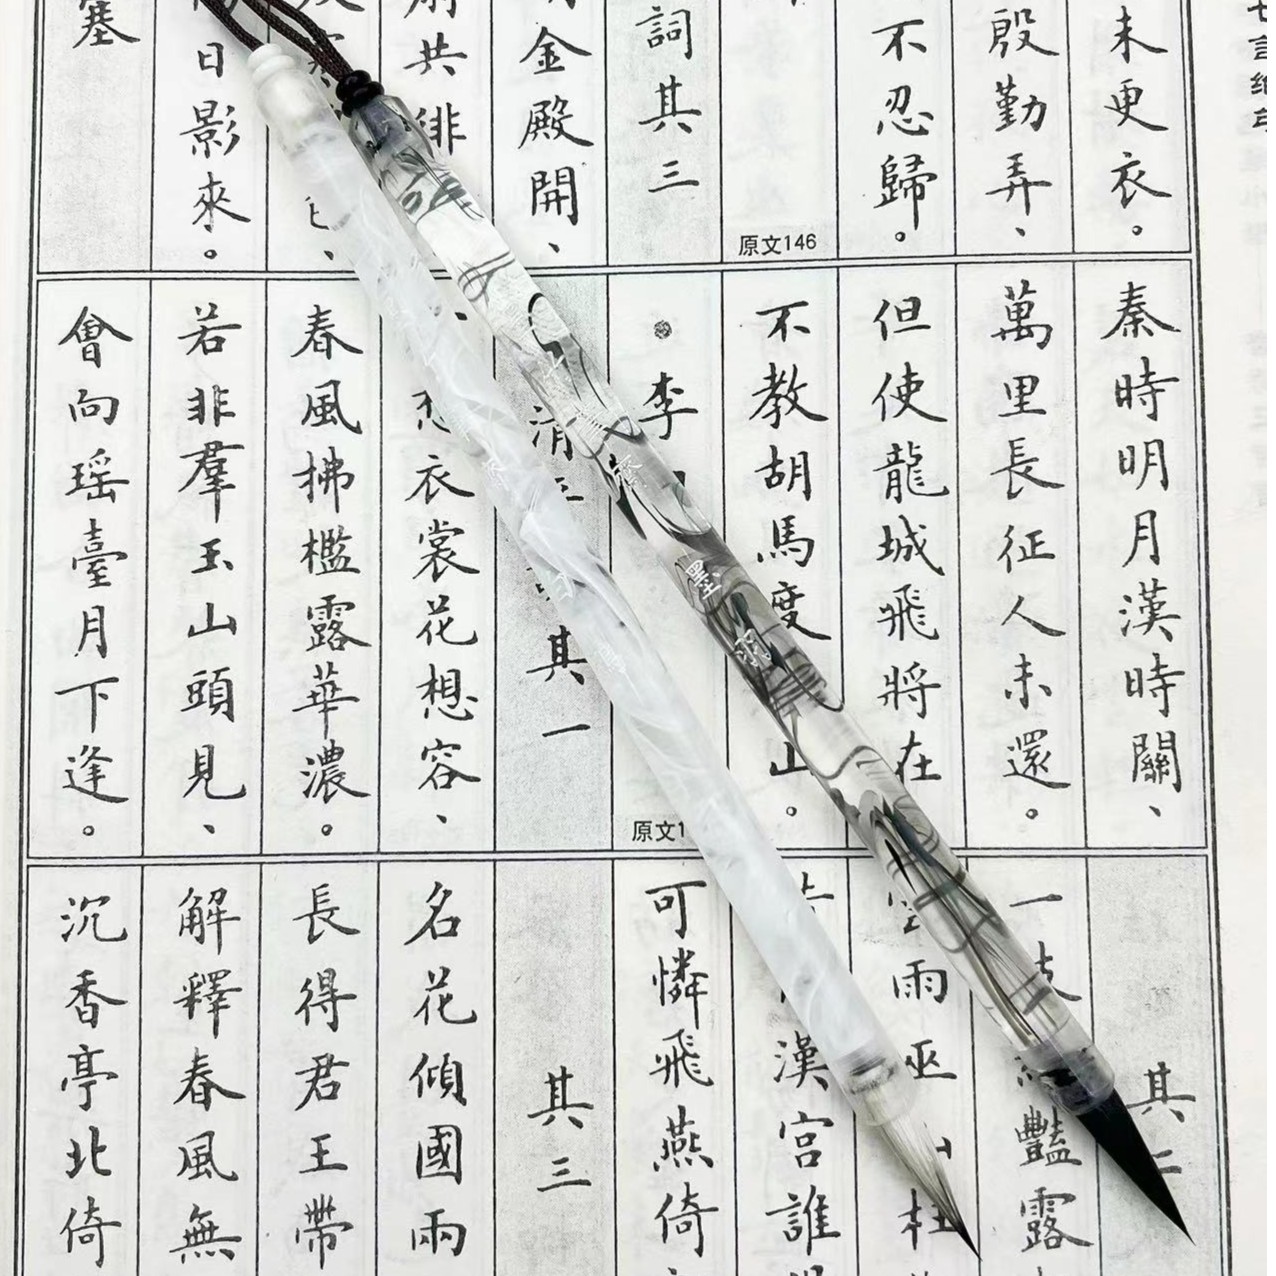 未更衣。
殷勤弄、
不忍歸。
原文146
詞其三
金殿開、
共徘
日影來。
塞
秦時明月漢時關、
萬里長征人未還。
但使龍城飛將在
不教胡馬度山。
李
原文1
清其一
想衣裳花想容、
春風拂檻露華濃。
若非羣玉山頭見、
會向瑶臺月下逢。
其二
一豔露
雨巫
漢宮誰
可憐飛燕倚
其三
名花傾國兩
長得君王帶
解釋春風無
沉香亭北倚
墨